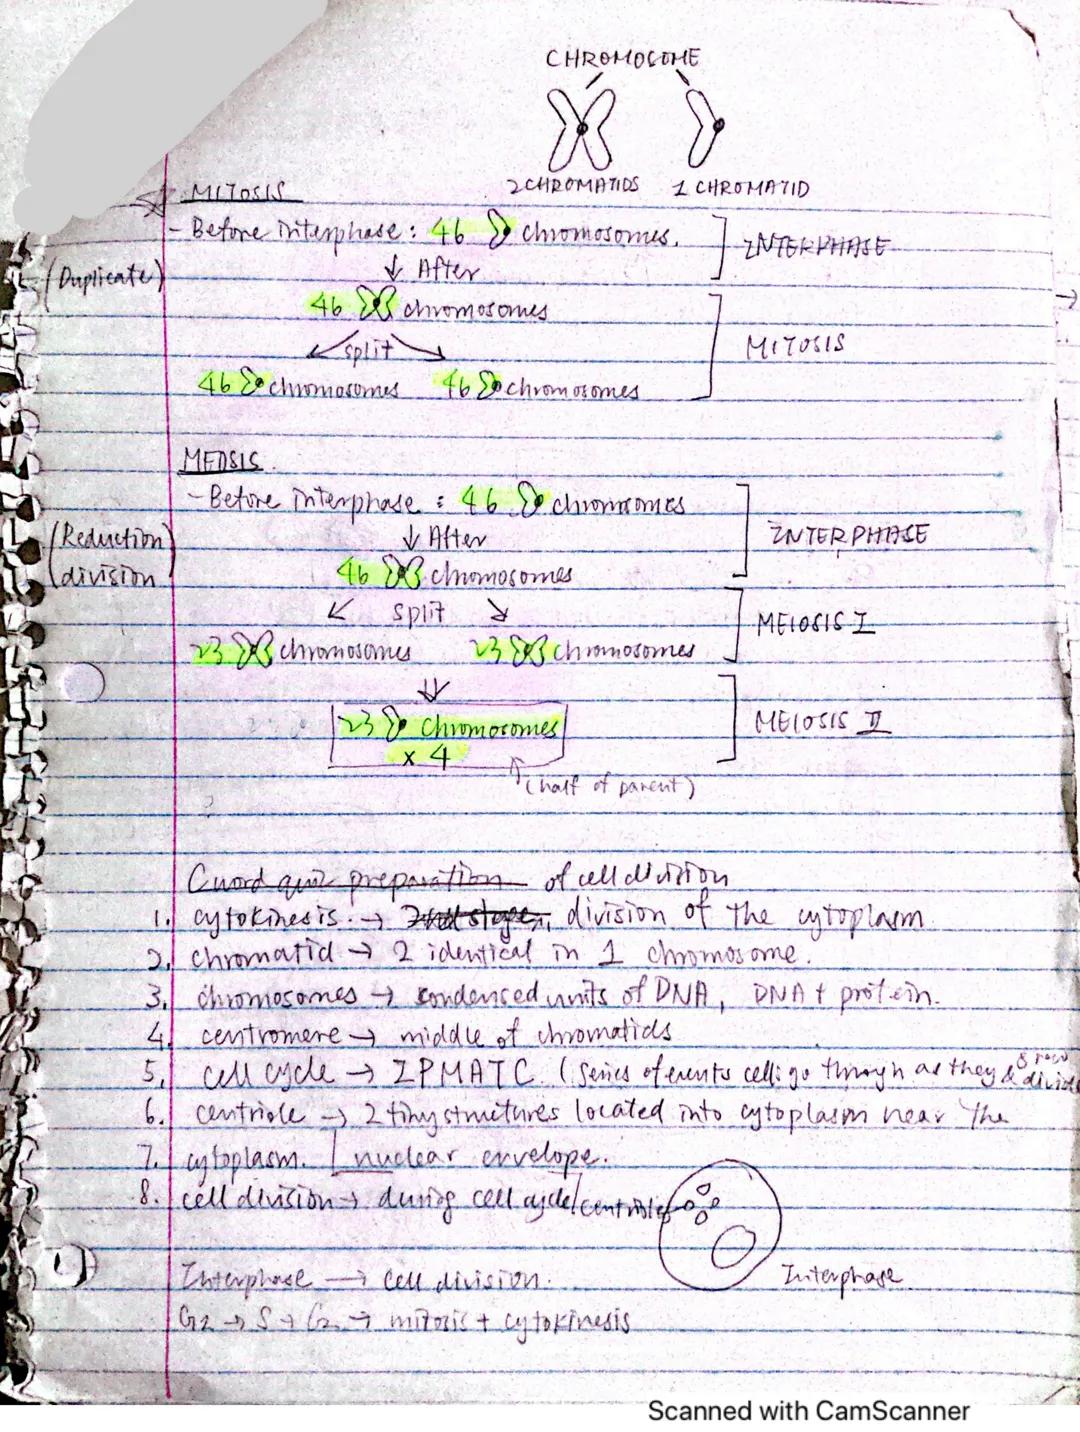 CHROMOSOME
2 CHROMATIDS 1 CHROMATID
MITOSIS
- Before interphase : 46 chromosomes. INTERPHASE
(Duplicate) ↓ After
46 chromosomes
split MITOSIS
46 chromosomes 46 chromosomes
MEOSIS
- Before interphase : 46 chromosomes
(Reduction division) ↓ After INTERPHASE
46 chromosomes
split
MEIOSIS I
23 chromosomes 23 chromosomes
23 chromosomes MEIOSIS II
x 4
(half of parent)
?
Cword quiz preparation of cell division
1. cytokinesis → 2nd stage, division of the cytoplasm
2. chromatid → 2 identical in 1 chromosome.
3. chromosomes → condensed units of DNA, DNA + protein.
4. centromere → middle of chromatids
5. cell cycle → IPMATC (series of events cells go through as they grow & divide
6. centriole → 2 tiny structures located into cytoplasm near the
7. cytoplasm. nuclear envelope.
8. cell division → during cell cycle centrioles
Interphase → cell division. Interphase
G2 → S → G2 → mitosis + cytokinesis
Scanned with CamScanner